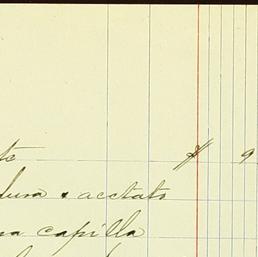 te $ 9
dura & acetato
na capilla